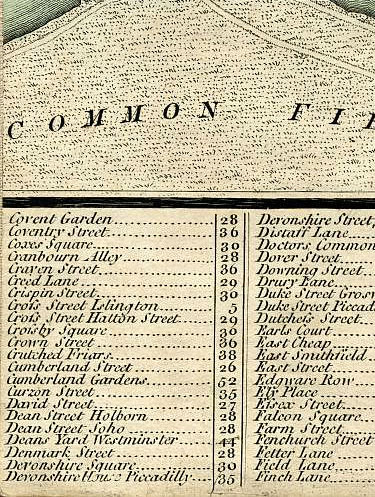 COMMON FI
Covent Garden 28
Coventry Street 36
Coxes Square 30
Cranbourn Alley 28
Craven Street 36
Creed Lane 29
Crispin Street 30
Croſs Street Islington 5
Croſs Street Hatton Street 29
Crosby Square 30
Crown Street 36
Crutched Friars 38
Cumberland Street 26
Cumberland Gardens 52
Curzon Street 35
David Street 27
Dean Street Holborn 28
Dean Street Soho 28
Deans Yard Westminster 44
Denmark Street 28
Devonshire Square 30
Devonshire House Piccadilly 35
Devonshire Street
Distaff Lane
Doctors Common
Dover Street
Downing Street
Drury Lane
Duke Street Grosv
Duke Street Piccad
Dutchess Street
Earls Court
East Cheap
East Smithfield
East Street
Edgware Row
Ely Place
Eſsex Street
Falcon Square
Farm Street
Fenchurch Street
Fetter Lane
Field Lane
Finch Lane